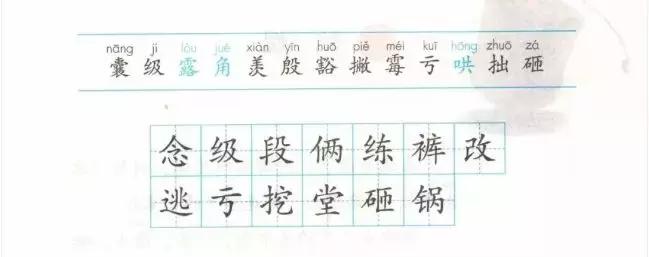 nāng jí lòu jué xiàn yīn huō piě méi kuī hōng zhuō zá
囊 级 露 角 羡 殷 豁 撇 霉 亏 哄 拙 砸
念 级 段 俩 练 裤 改
逃 亏 挖 堂 砸 锅